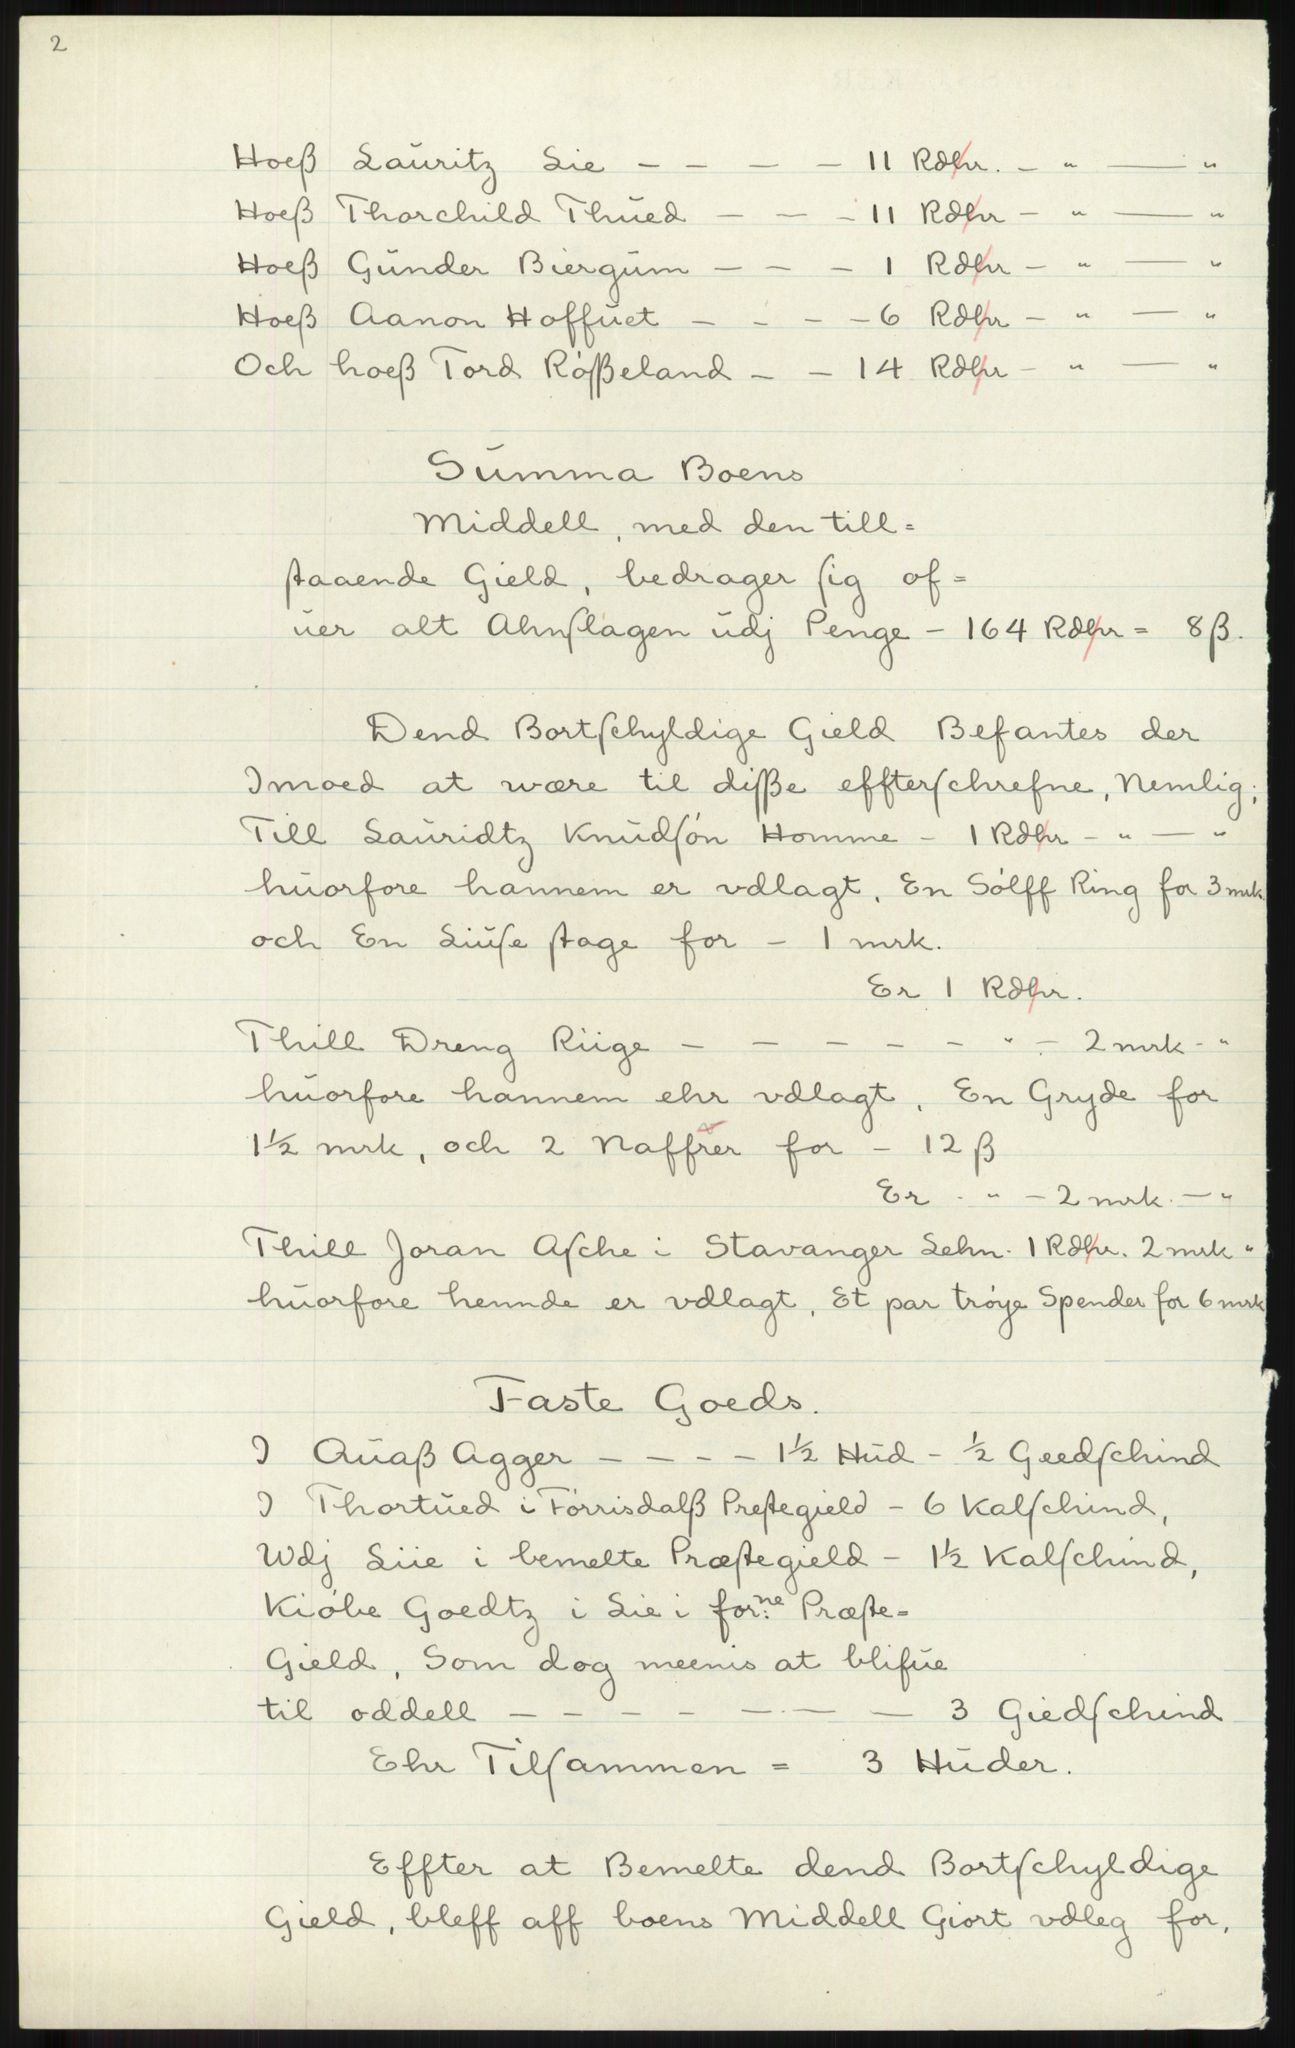 2
Hoeß Lauritz Lie – – – – 11 Rdlr. – " — "
Hoeß Thorchild Thüed – – – 11 Rdlr – " — "
Hoeß Günder Biergüm – – – 1 Rdlr – " — "
Hoeß Aanon Hoffüet – – – – 6 Rdlr – " — "
Och hoeß Tord Rößeland – – 14 Rdlr – " — "
Sümma Boens
Middell, med den till=
ſtaaende Gield, bedrager ſig of=
üer alt Ahnſlagen üdj Penge – 164 Rdlr = 8 ß.
Dend Bortſchyldige Gield Befantes der
Imoed at wære til diſße effterſchrefne, Nemlig;
Till Lauridtz Knüdſón Homme – 1 Rdlr – " — "
hüorfore hannem er vdlagt, En Sólff Ring for 3 mrk
och En Liüſe ſtage for – 1 mrk.
Er 1 Rdlr.
Thill Dreng Riige – – – – – " – 2 mrk – "
hüorfore hannem ehr vdlagt, En Gryde for
1½ mrk, och 2 Naffrer for – 12 ß
Er – " – 2 mrk. – "
Thill Joran Aſche i Stavanger Lehn. 1 Rdlr. 2 mrk "
hüorfore hennde er vdlagt, Et par tróye Spender for 6 mrk
Faste Goeds.
I Aüaß Agger – – – – 1½ Hüd – ½ Geedſchind
I Thortüed i Förrisdalß Preſtegield – 6 Kalſchind,
Udj Liie i bemelte Præſtegield – 1½ Kalſchind,
Kióbe Goedtz i Lie i forne: Præſte=
Gield, Som dog meenis at blifüe
til oddell – – – – – – – 3 Giedſchind
Ehr Tilſammen = 3 Hüder.
Effter at Bemelte dend Bortſchyldige
Gield, bleff aff boens Middell Giort vdleg for,